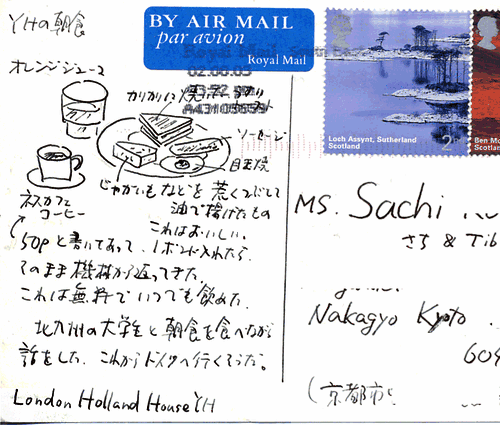 YHの朝食
オレンジジュース
カリカリに焼いた
ソーセージ
目玉焼
ネスカフェ
コーヒー
じゃがいもなどを煮くつぶして
油で揚げたもの
これはおいしい。
50Pと書いてあって、1ポンド入れたら、
そのまま機械から返ってきた。
これは無料でいつでも飲めた。
北九州の大学生と朝食を食べながら
話をした。これからドイツへ行くそうだ。
London Holland House YH
BY AIR MAIL
par avion
Royal Mail
Royal Mail
02.08.03
A43103659
Loch Assynt, Sutherland
Scotland
2nd
Ben Mo
Scotland
Ms. Sachi
さち & Tib
Nakagyo Kyoto
604
(京都市